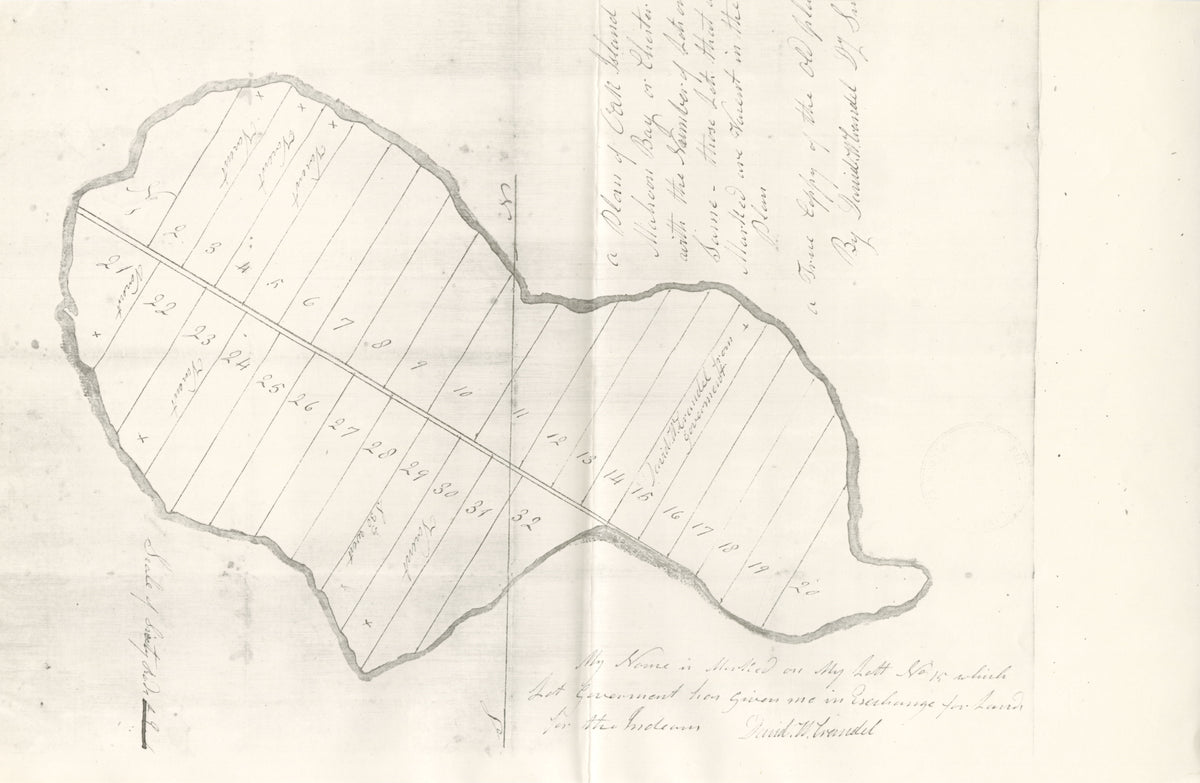 a Plan of Oak Island
Mahoon Bay or Chester
with the Number of Lots on
Same - those Lots that
Marked are Vacest in the
Plan
a True Copy of the Old pla
By David.W.Crandel Dy Su
N
No 1
2
3
4
5
6
7
8
9
10
11
12
13
14
15
16
17
18
19
20
21
22
23
24
25
26
27
28
29
30
31
32
Vacest
Vacest
Vacest
Vacest
Vacest
Vacest
David.W.Crandel from
goverment
S
Scale of
My Name is Marked on My Lott No 15 which
Lot Goverment has Given me in Exchange for Land
for the Indeans David.W.Crandel